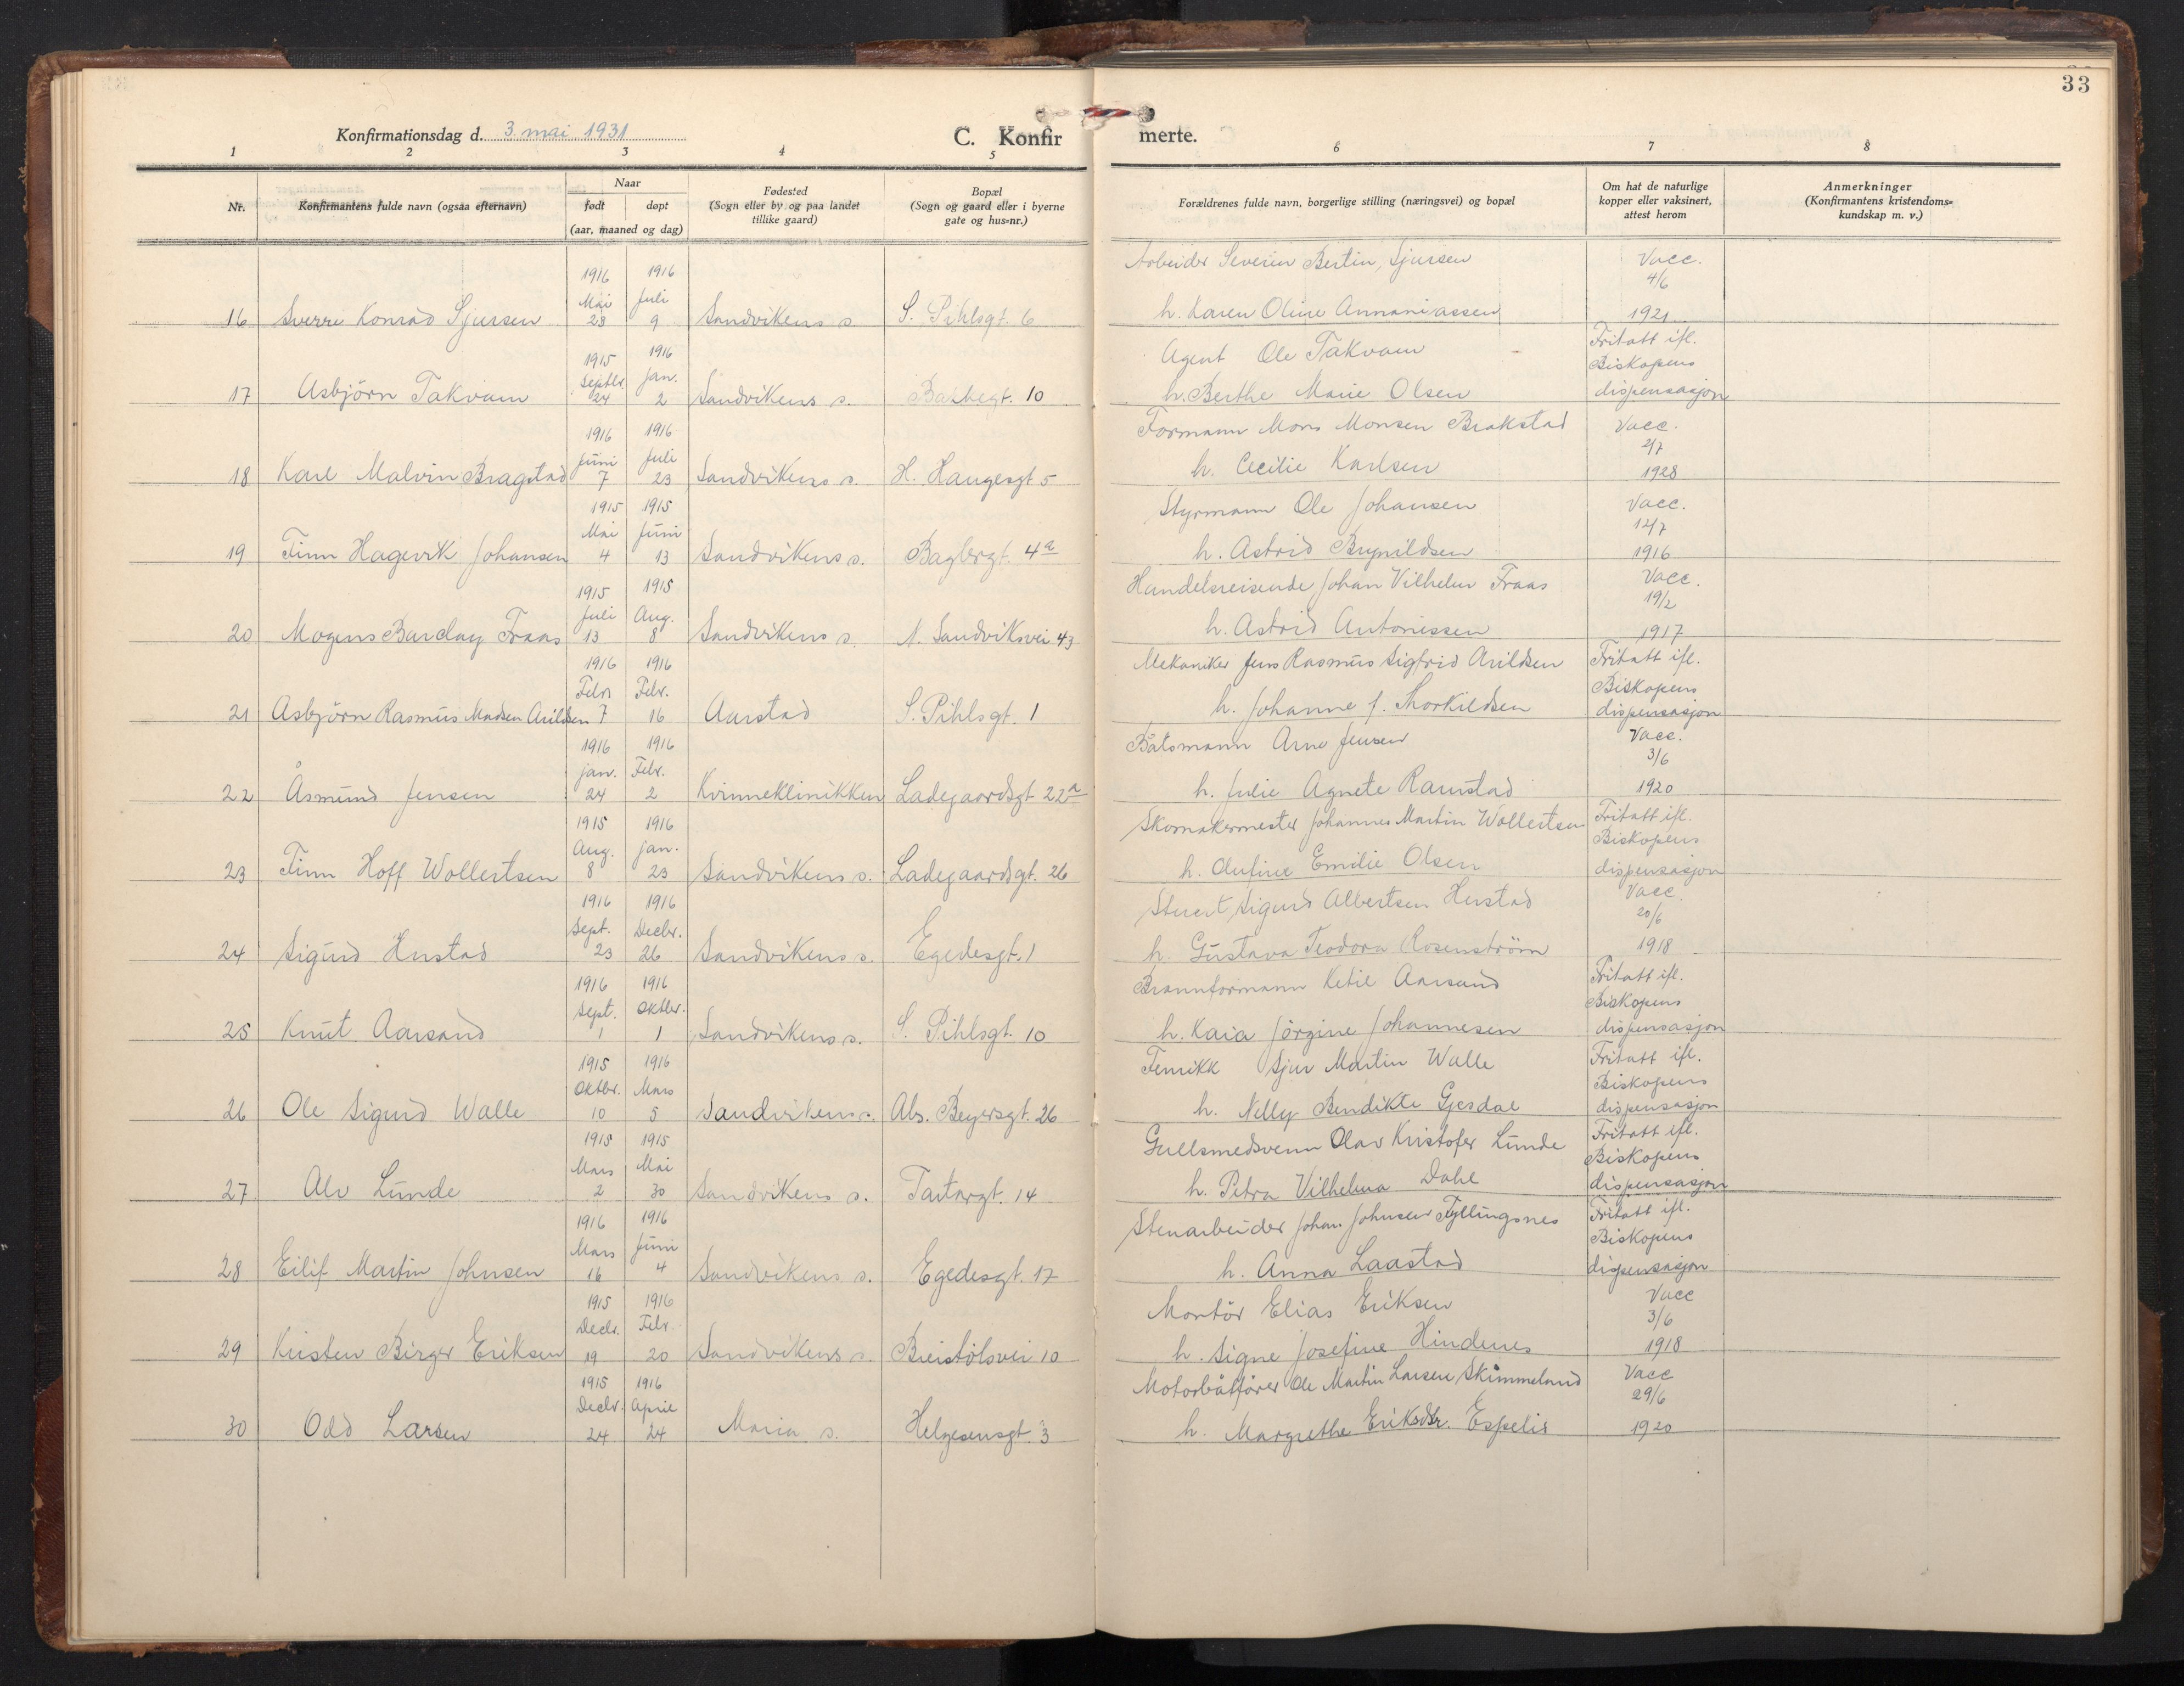 33
Konfirmationsdag d. 3. mai 1931
C. Konfirmerte.
1 2 3 4 5 6 7 8
Nr.
Konfirmantens fulde navn (ogsaa efternavn)
Naar
født døpt
(aar, maaned og dag)
Fødested
(Sogn eller by og paa landet
tillike gaard)
Bopæl
(Sogn og gaard eller i byerne
gate og hus-nr.)
Forældrenes fulde navn, borgerlige stilling (næringsvei) og bopæl
Om hat de naturlige
kopper eller vaksinert,
attest herom
Anmerkninger
(Konfirmantens kristendoms-
kundskap m. v.)
1916 1916 Arbeider Severin Bertin Sjursen Vacc.
Mai Juli 4/6
16 Sverre Konrad Sjursen 23 9 Sandvikens s. S. Pihlsgt. 6 h. Karen Oline Annaniassen 1921
1915 1916 Agent Ole Takvam Fritatt ifl.
Septbr. Jan. Biskopens
17 Asbjörn Takvam 24 2 Sandvikens s. 10 h. Berthe Marie Olsen dispensasjon
1916 1916 Formann Mons Monsen Brakstad Vacc.
Juni Juli 2/7
18 Karl Malvin Bragstad 7 23 Sandvikens s. H. Haugesgt 5 h. Cecilie Karlsen 1928
1915 1915 Styrmann Ole Johansen Vacc.
Mai Juni 12/7
19 Finn Hagevik Johansen 4 13 Sandvikens s. Baglergt. 4a h. Astrid Brynildsen 1916
1915 1915 Handelsreisende Johan Vilhelm Fraas Vacc.
Juli Aug. 19/2
20 Mogens Barclay Fraas 13 8 Sandvikens s. N. Sandviksvei 43 h. Astrid Antonissen 1917
1916 1916 Mekaniker Jens Rasmus Sigfrid Arildsen Fritatt ifl.
Febr Febr. Biskopens
21 Asbjörn Rasmus Madsen Arildsen 7 16 Aarstad S. Pihlsgt. 1 h. Johanne f. Thorkildsen dispensasjon
1916 1916 Båtsmann Arne Jensen Vacc.
Jan. Febr. 3/6
22 Åsmund Jensen 24 2 Kvinneklinikken Ladegaardsgt 22a h. Julie Agnete Ramstad 1920
1915 1916 Skomakermester Johannes Martin Wollertsen Fritatt ifl.
Aug. Jan. Biskopens
23 Finn Hoff Wollertsen 8 23 Sandvikens s. Ladegaardsgt. 26 h. Olufine Emilie Olsen dispensasjon
1916 1916 Stuert Sigurd Albertsen Hustad Vacc.
Sept. Decbr. 20/6
24 Sigurd Hustad 23 26 Sandvikens s. Egedesgt. 1 h. Gustava Teodora Rosenström 1918
1916 1916 Brannformann Ketil Aarsand Fritatt ifl.
Sept. Oktbr. Biskopens
25 Knut Aarsand 1 1 Sandvikens s. S. Pihlsgt. 10 h. Kaia Jörgine Johannesen dispensasjon
1915 1916 Fenrikk Sjur Martin Walle Fritatt ifl.
Oktbr. Mars Biskopens
26 Ole Sigurd Walle 10 5 Sandvikens s. Abs. Beyersgt. 26 h. Nelly Bendikte Gjesdal dispensasjon
1915 1915 Gullsmedsvenn Olav Kristofer Lunde Fritatt ifl.
Mars Mai Biskopens
27 Alv Lunde 2 30 Sandvikens s. Tartargt. 14 h. Petra Vilhelma Dahl dispensasjon
1916 1916 Stenarbeider Johan Johnsen Fyllingsnes Fritatt ifl.
Mars Juni Biskopens
28 Eilif Martin Johnsen 16 4 Sandvikens s. Egedesgt. 17 h. Anna Laastad dispensasjon
1915 1916 Montör Elias Eriksen Vacc
Decbr. Febr. 3/6
29 Kristen Birger Eriksen 19 20 Sandvikens s. Breistölsvei 10 h. Signe Josefine Hindenes 1918
1915 1916 Motorbåtförer Ole Martin Larsen Skimmeland Vacc
Decbr. April 29/6
30 Odd Larsen 24 24 Maria s. Helgesensgt. 3 h. Margrethe Eriksdtr. Espelis 1920